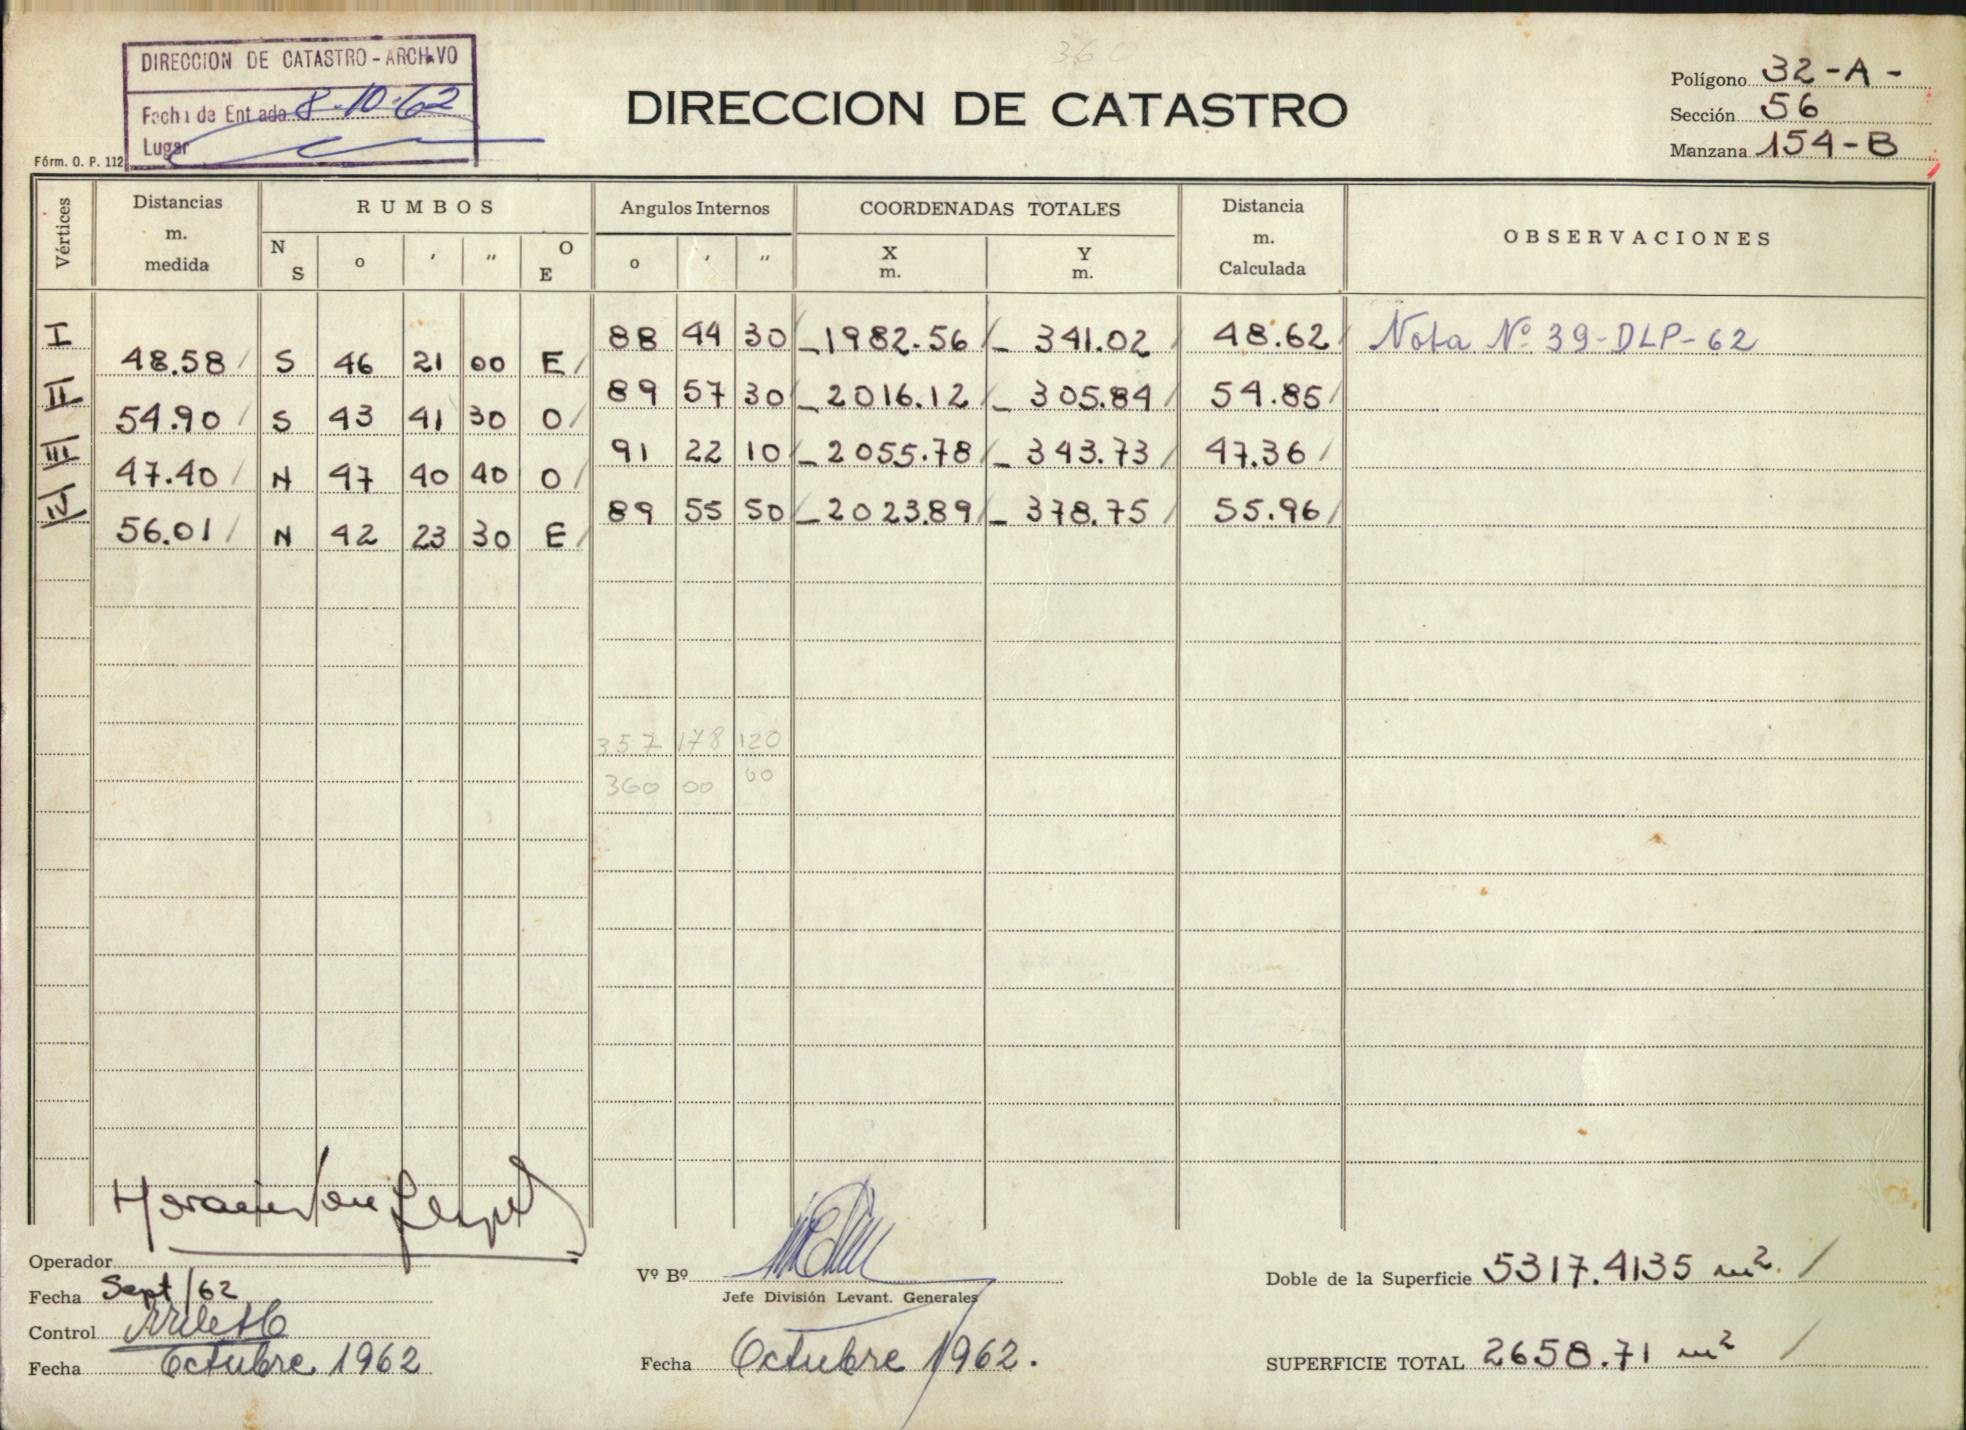 DIRECCION DE CATASTRO - ARCHIVO
Fecha de Entrada 8-10-62
Lugar
Fórm. O. P. 112
DIRECCION DE CATASTRO
Polígono 32-A-
Sección 56
Manzana 154-B
Vértices Distancias m. medida RUMBOS N S o ' " O E Angulos Internos o ' " COORDENADAS TOTALES X m. Y m. Distancia m. Calculada OBSERVACIONES
I 88 44 30 -1982.56 - 341.02 48.62 Nota Nº 39-DLP-62
48.58 S 46 21 00 E
II 89 57 30 -2016.12 - 305.84 54.85
54.90 S 43 41 30 O
III 91 22 10 -2055.78 - 343.73 47.36
47.40 N 47 40 40 O
IV 89 55 50 -2023.89 - 378.75 55.96
56.01 N 42 23 30 E
357 178 120
360 00 00
Operador
Fecha Sept/62
Control
Fecha Octubre 1962
Vº Bº
Jefe División Levant. Generales
Fecha Octubre 1962.
Doble de la Superficie 5317.4135 m².
SUPERFICIE TOTAL 2658.71 m²